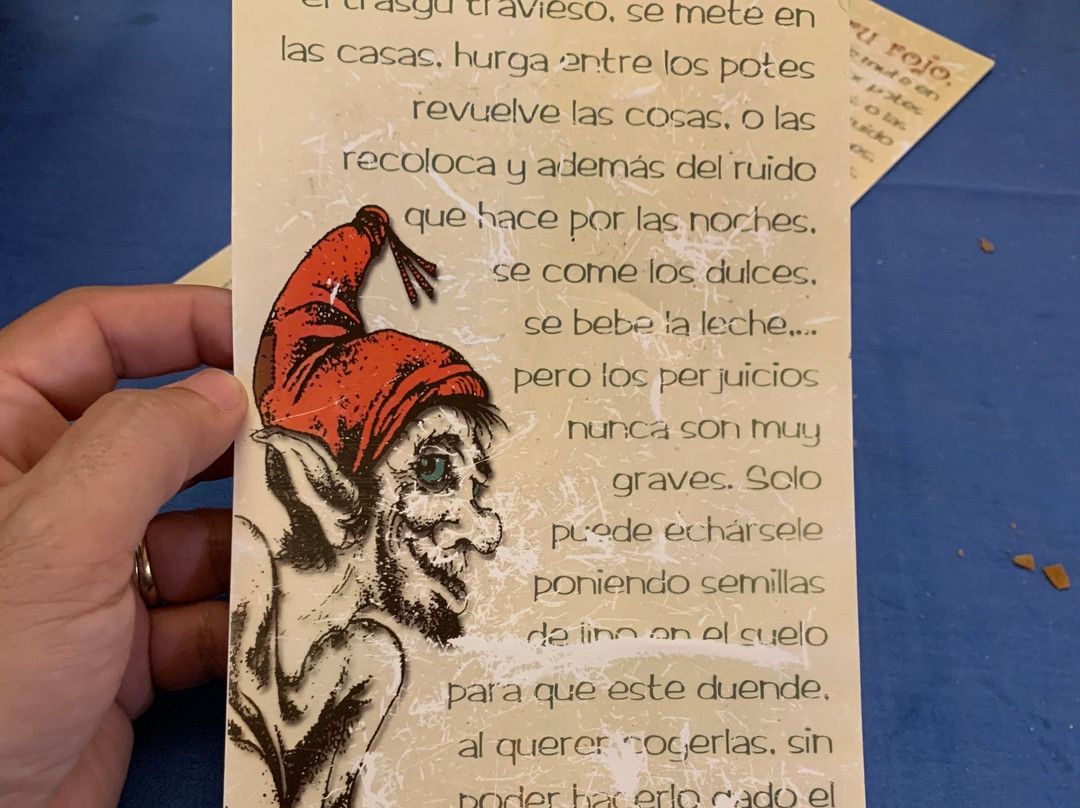 el trasgu travieso, se mete en
las casas, hurga entre los potes
revuelve las cosas, o las
recoloca y además del ruido
que hace por las noches,
se come los dulces,
se bebe la leche,...
pero los perjuicios
nunca son muy
graves. Solo
puede echársele
poniendo semillas
de lino en el suelo
para que este duende,
al querer cogerlas, sin
poder hacerlo dado el
rojo,
en
potes
o las
ruido
es.